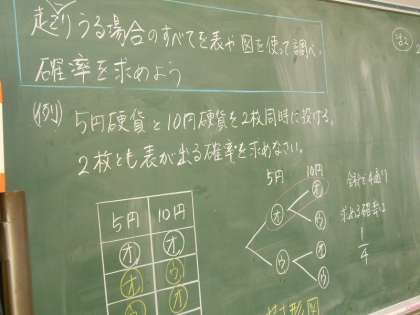 起こりうる場合のすべてを表や図を使って調べ、
確率を求めよう
(例) 5円硬貨と10円硬貨を2枚同時に投げる。
2枚とも表が出る確率を求めなさい。
5円 10円
オ オ
オ ウ
ウ オ
5円 10円
オ オ
ウ
ウ オ
ウ
全部で4通り
求める確率は
1
4
樹形図